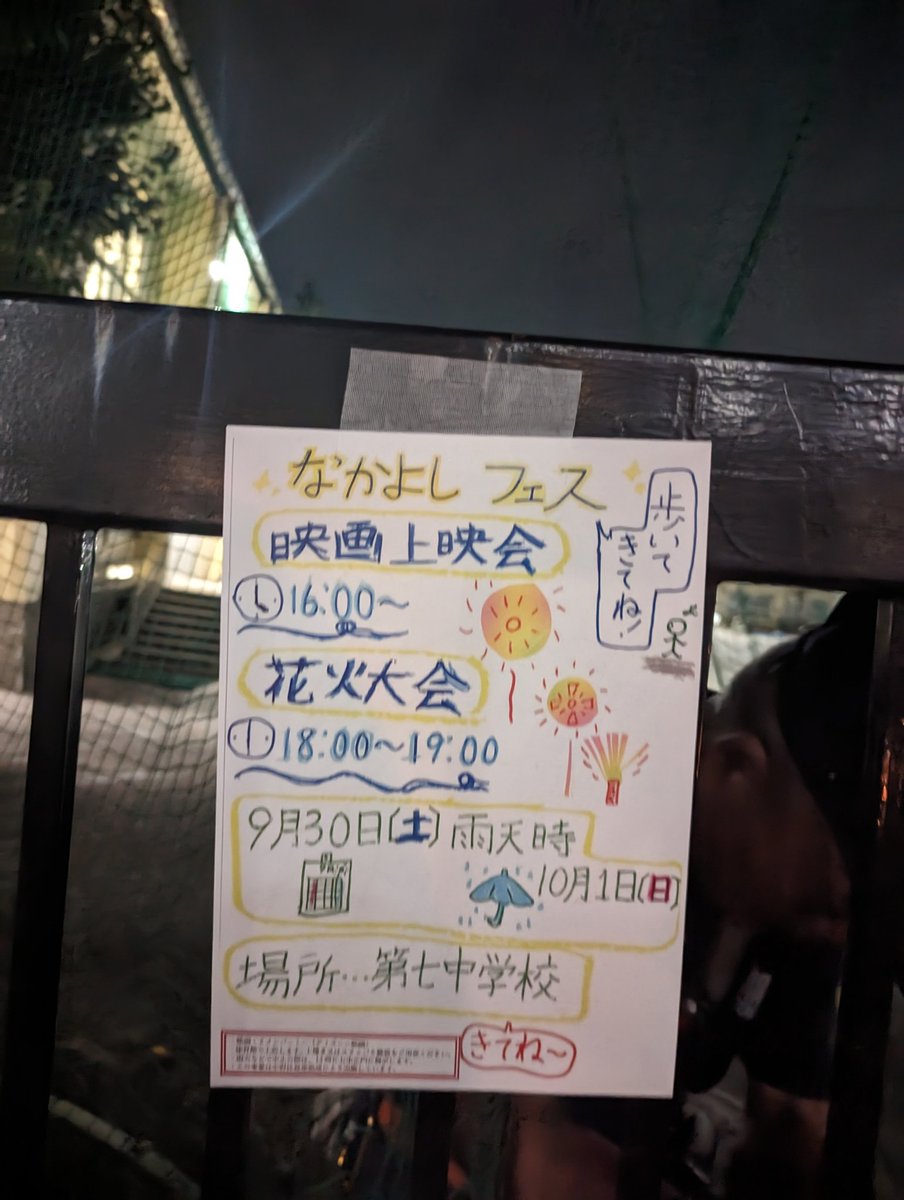 なかよし フェス
歩いて
きてね!
映画上映会
16:00~
花火大会
18:00~19:00
9月30日(土) 雨天時
10月1日(日)
場所…第七中学校
きてね~